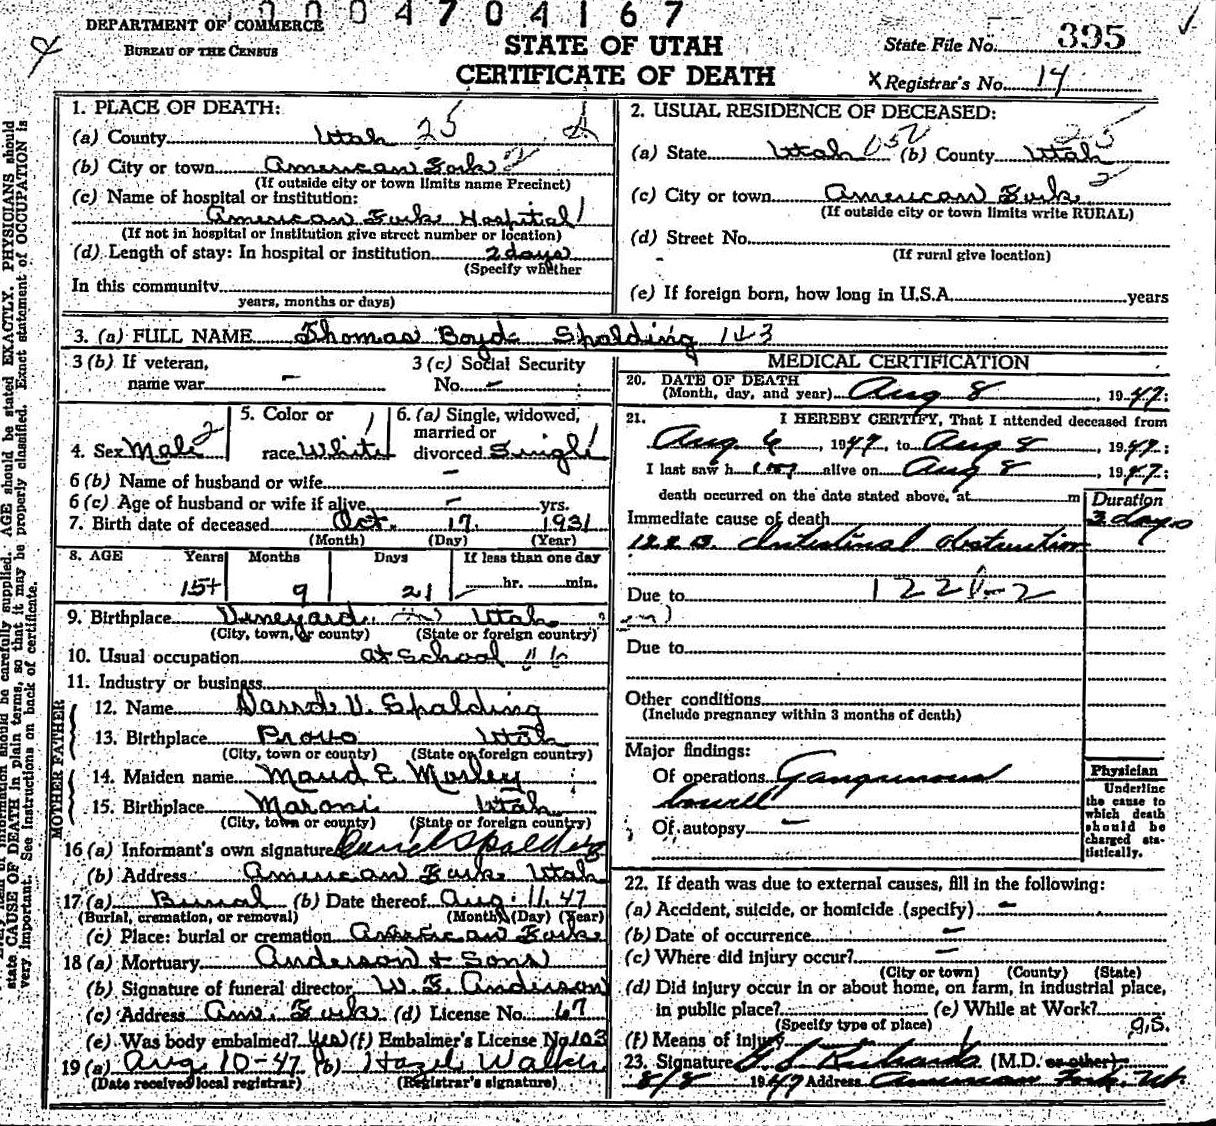 0004704167
DEPARTMENT OF COMMERCE
BUREAU OF THE CENSUS
STATE OF UTAH
CERTIFICATE OF DEATH
State File No. 395
X Registrar's No. 14
1. PLACE OF DEATH:
(a) County Utah 25
(b) City or town American Fork 2
(If outside city or town limits name Precinct)
(c) Name of hospital or institution:
American Fork Hospital 1
(If not in hospital or institution give street number or location)
(d) Length of stay: In hospital or institution 2 days
(Specify whether
In this community
years, months or days)
2. USUAL RESIDENCE OF DECEASED:
(a) State Utah 052 (b) County Utah 25
(c) City or town American Fork 2
(If outside city or town limits write RURAL)
(d) Street No. -
(If rural give location)
(e) If foreign born, how long in U.S.A. years
3. (a) FULL NAME Thomas Boyd Spalding 143
3 (b) If veteran, name war -
3 (c) Social Security No. -
4. Sex Male 2
5. Color or race White 1
6. (a) Single, widowed, married or divorced Single 1
6 (b) Name of husband or wife -
6 (c) Age of husband or wife if alive - yrs.
7. Birth date of deceased Oct. 17 1931
(Month) (Day) (Year)
8. AGE Years Months Days If less than one day
15+ 9 21 hr. min.
9. Birthplace Vineyard Utah
(City, town, or county) (State or foreign country)
10. Usual occupation at School
11. Industry or business
FATHER
12. Name V. Spalding
13. Birthplace Provo Utah
(City, town or county) (State or foreign country)
MOTHER
14. Maiden name Maud E. Morley
15. Birthplace Maroni Utah
(City, town or county) (State or foreign country)
16 (a) Informant's own signature Spalding
(b) Address American Fork Utah
17 (a) Burial (b) Date thereof Aug. 11. 47
(Burial, cremation, or removal) (Month) (Day) (Year)
(c) Place: burial or cremation American Fork
18 (a) Mortuary Anderson & Sons
(b) Signature of funeral director W. E. Anderson
(c) Address Am. Fork (d) License No. 67
(e) Was body embalmed? Yes (f) Embalmer's License No. 103
19 (a) Aug 10-47 (b) Hazel Walker
(Date received local registrar) (Registrar's signature)
MEDICAL CERTIFICATION
20. DATE OF DEATH
(Month, day, and year) Aug 8, 1947;
21. I HEREBY CERTIFY, That I attended deceased from
Aug 6, 1947, to Aug 8, 1947;
I last saw him alive on Aug 8, 1947;
death occurred on the date stated above, at m
Duration
Immediate cause of death 3 days
122 B Intestinal obstruction
Due to
Due to
Other conditions
(Include pregnancy within 3 months of death)
Major findings:
Of operations Gangrenous
bowell
Of autopsy -
Physician
Underline the cause to which death should be charged statistically.
22. If death was due to external causes, fill in the following:
(a) Accident, suicide, or homicide (specify) -
(b) Date of occurrence -
(c) Where did injury occur? -
(City or town) (County) (State)
(d) Did injury occur in or about home, on farm, in industrial place,
in public place? (e) While at Work?
(Specify type of place)
(f) Means of injury
23. Signature G. S. Richards (M.D. or other)
8/8 1947 Address American Fork, Ut.